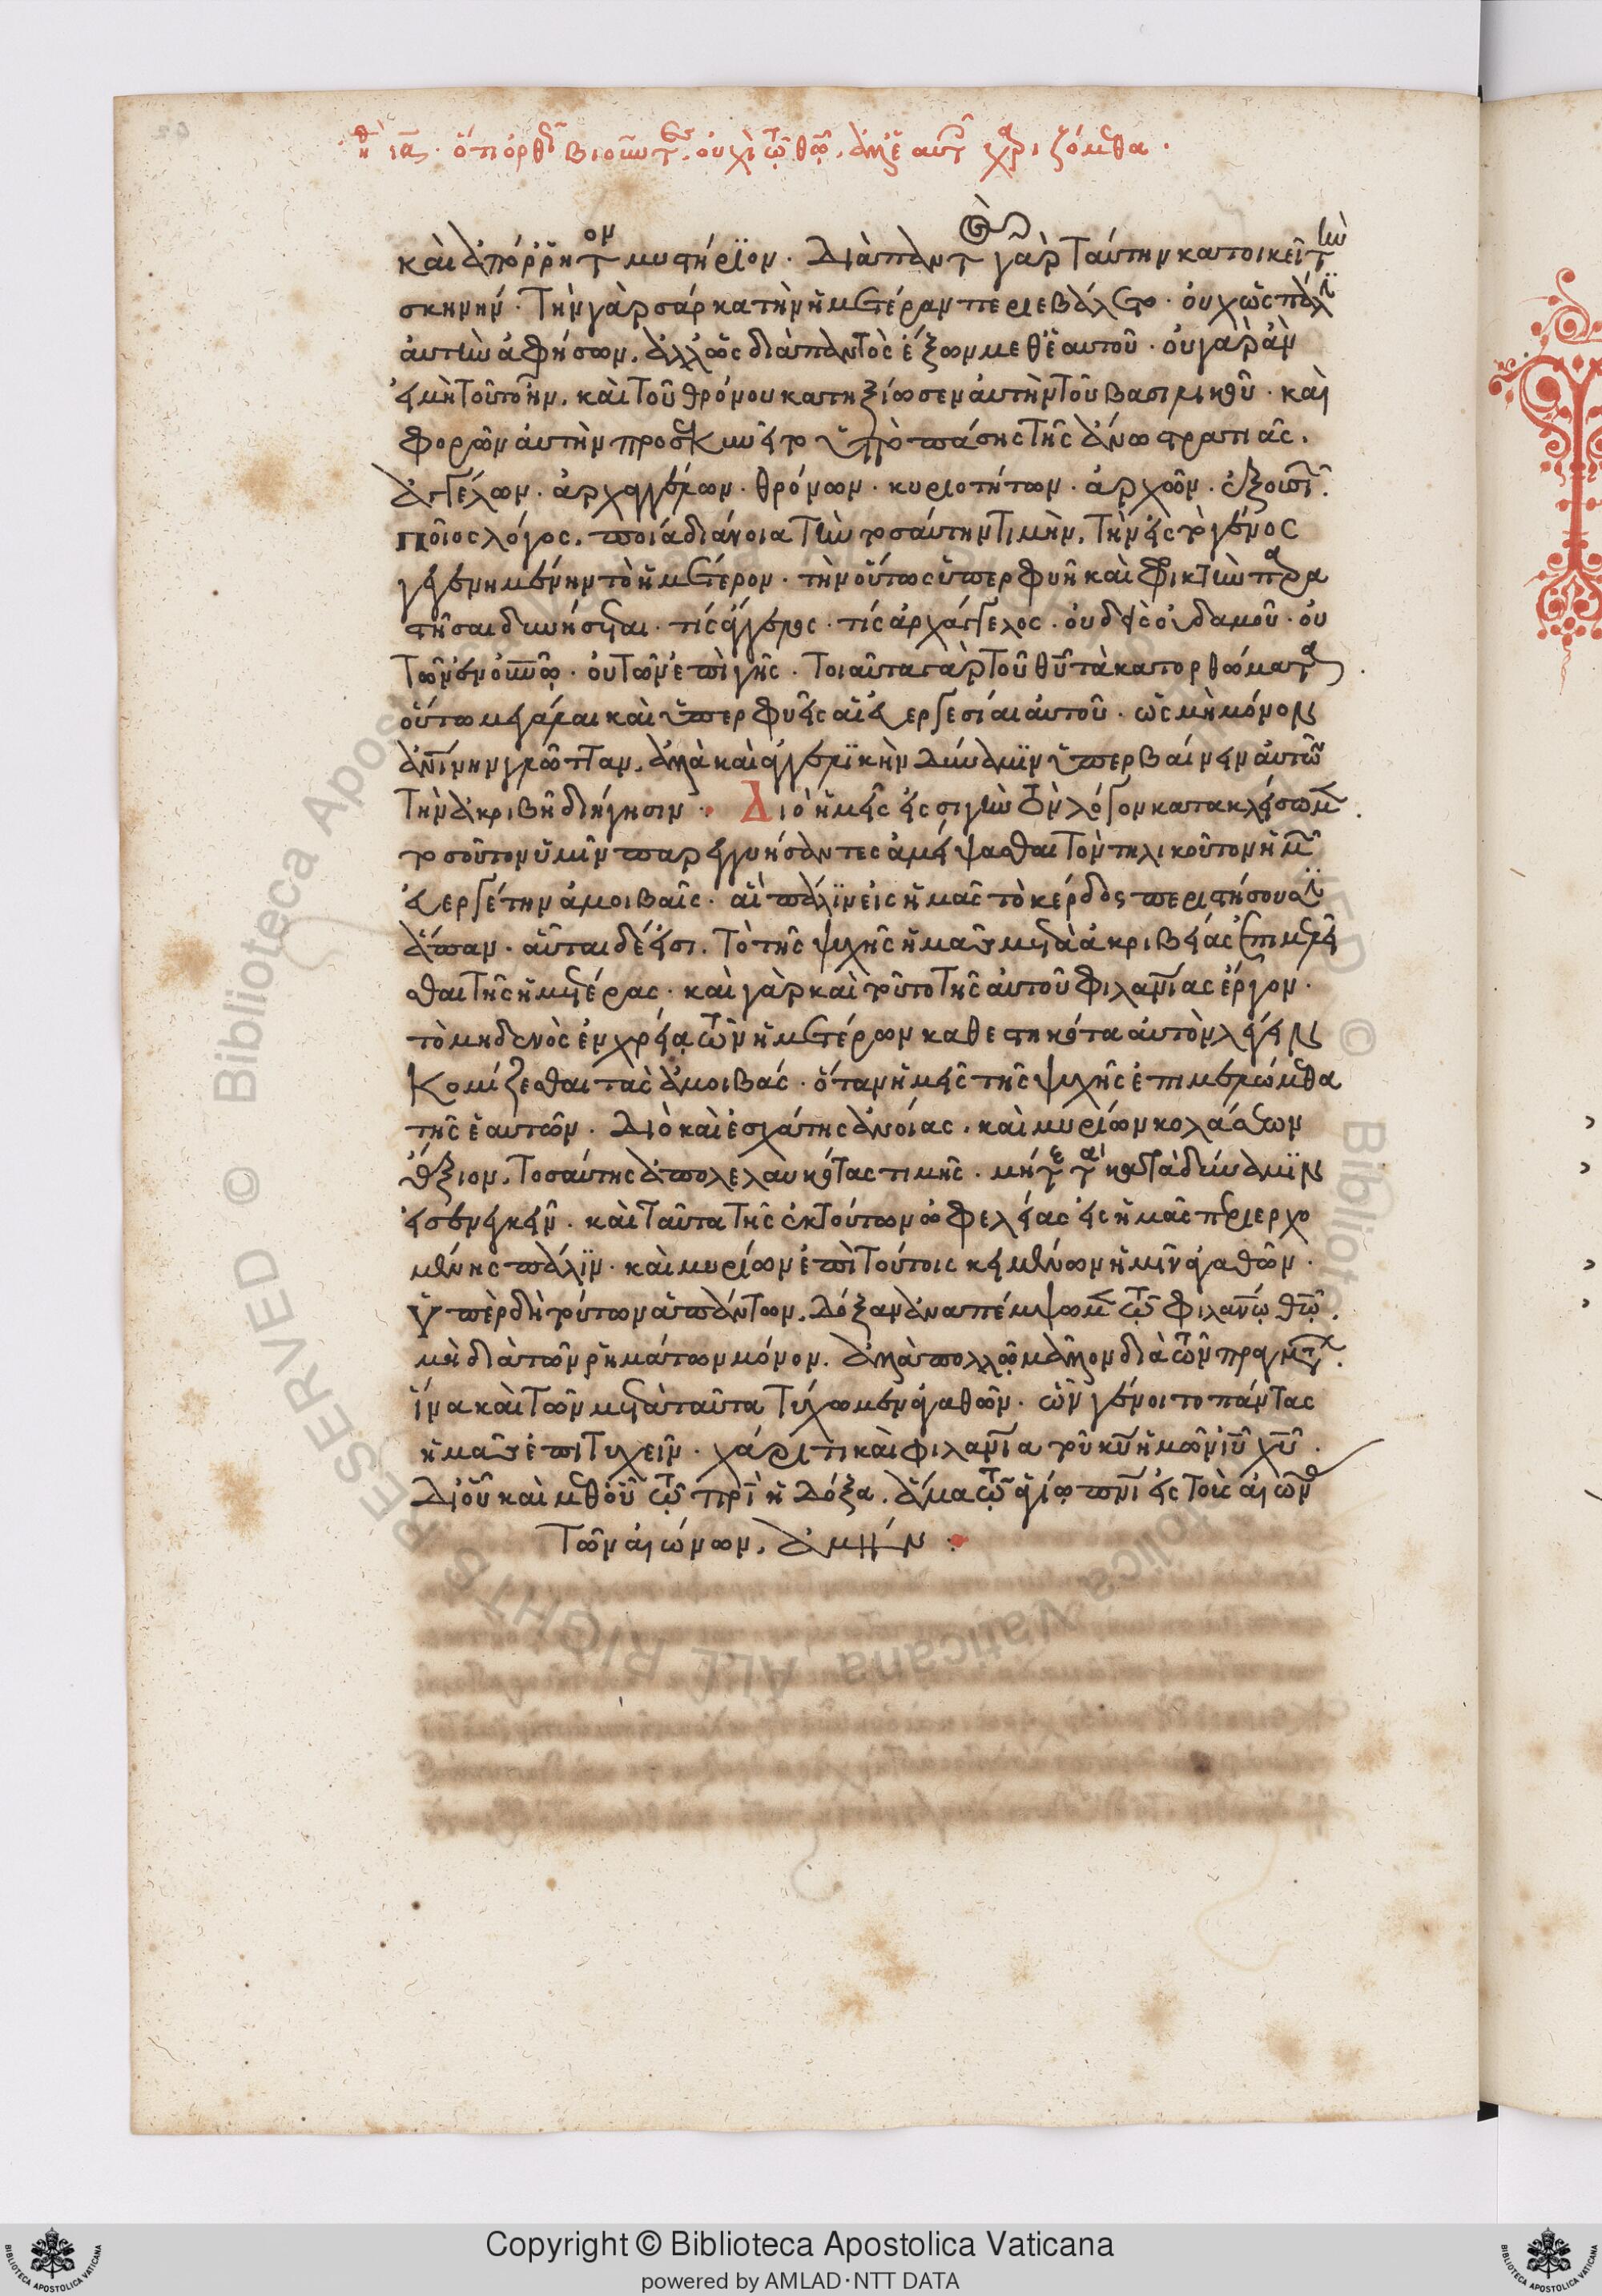 ἠθ ια. ὅτι ὀρθῶς βιοῦντες, οὐχὶ τῷ θῷ, ἀλλ' ἑαυτοῖς χαριζόμεθα.
καὶ ἀπόρρητον μυστήριον. Διαπαντὸς γὰρ ταύτην κατοικεῖ τὴν
σκηνήν. Τὴν γὰρ σάρκα τὴν ἡμετέραν περιεβάλετο. οὐχ ὡς πάλιν
αὐτὴν ἀφήσων, ἀλλ' ὡς διαπαντὸς ἕξων μεθ' ἑαυτοῦ. οὐ γὰρ ἂν
εἰ μὴ τοῦτο ἦν, καὶ τοῦ θρόνου κατηξίωσεν αὐτὴν τοῦ βασιλικοῦ. καὶ
φορῶν αὐτὴν προσεκυνεῖτο ὑπὸ πάσης τῆς ἄνω στρατιᾶς.
ἀγγέλων. ἀρχαγγέλων. θρόνων. κυριοτήτων. ἀρχῶν. ἐξουσιῶν.
ποῖος λόγος. ποία διάνοια τὴν τοσαύτην τιμὴν, τὴν εἰς τὸ γένος
γεγενημένην τὸ ἡμέτερον. τὴν οὕτως ὑπερφυῆ καὶ φρικτὴν παρα
στῆσαι δυνήσεται. τίς ἄγγελος. τίς ἀρχάγγελος. οὐδεὶς οὐδαμοῦ. οὐ
τῶν ἐν οὐνῷ. οὐ τῶν ἐπὶ γῆς. Τοιαῦτα γὰρ τοῦ θῦ τὰ κατορθώματα.
οὕτω μεγάλαι καὶ ὑπερφυεῖς αἱ εὐεργεσίαι αὐτοῦ. ὡς μὴ μόνον
ἀνίνην γλῶτταν, ἀλλὰ καὶ ἀγγελικὴν δύναμιν ὑπερβαίνειν αὐτῶν
τὴν ἀκριβῆ διήγησιν. Διὸ ἡμεῖς εἰς σιγὴν τὸν λόγον κατακλείσωμεν.
τοσοῦτον ὑμῖν παρεγγυήσαντες ἀμείψασθαι τὸν τηλικοῦτον ἡμῶν
εὐεργέτην ἀμοιβαῖς. αἳ πάλιν εἰς ἡμᾶς τὸ κέρδος περιστήσουσιν
ἅπαν. αὗται δέ εἰσι. Τὸ τῆς ψυχῆς ἡμᾶς μετὰ ἀκριβείας ἐπιμελεῖ
σθαι τῆς ἡμετέρας. καὶ γὰρ καὶ τοῦτο τῆς αὐτοῦ φιλανίας ἔργον.
τὸ μηδενὸς ἐν χρείᾳ τῶν ἡμετέρων καθεστηκότα αὐτὸν λέγειν
κομίζεσθαι τὰς ἀμοιβάς. ὅταν ἡμεῖς τῆς ψυχῆς ἐπιμελώμεθα
τῆς ἑαυτῶν. Διὸ καὶ ἐσχάτης ἀνοίας, καὶ μυρίων κολάσεων
ἄξιον, τοσαύτης ἀπολελαυκότας τιμῆς. μήτε τὰ κατὰ δύναμιν
εἰσενεγκεῖν. καὶ ταῦτα τῆς ἐκ τούτων ὠφελείας εἰς ἡμᾶς περιερχο
μένης πάλιν. καὶ μυρίων ἐπὶ τούτοις κειμένων ἡμῖν ἀγαθῶν.
ὑπὲρ δὴ τούτων ἁπάντων, δόξαν ἀναπέμψωμεν τῷ φιλανῳ θῷ.
μὴ διὰ τῶν ῥημάτων μόνον. ἀλλὰ πολλῷ μᾶλλον διὰ τῶν πραγμάτων.
ἵνα καὶ τῶν μετὰ ταῦτα τύχωμεν ἀγαθῶν. ὧν γένοιτο πάντας
ἡμᾶς ἐπιτυχεῖν. χάριτι καὶ φιλανίᾳ τοῦ κῦ ἡμῶν ἰῦ χῦ.
Δι' οὗ καὶ μεθ' οὗ τῷ πρὶ ἡ δόξα. ἅμα τῷ ἁγίῳ πνὶ εἰς τοὺς αἰῶνας
τῶν αἰώνων, ἀμήν.
Copyright © Biblioteca Apostolica Vaticana
powered by AMLAD·NTT DATA